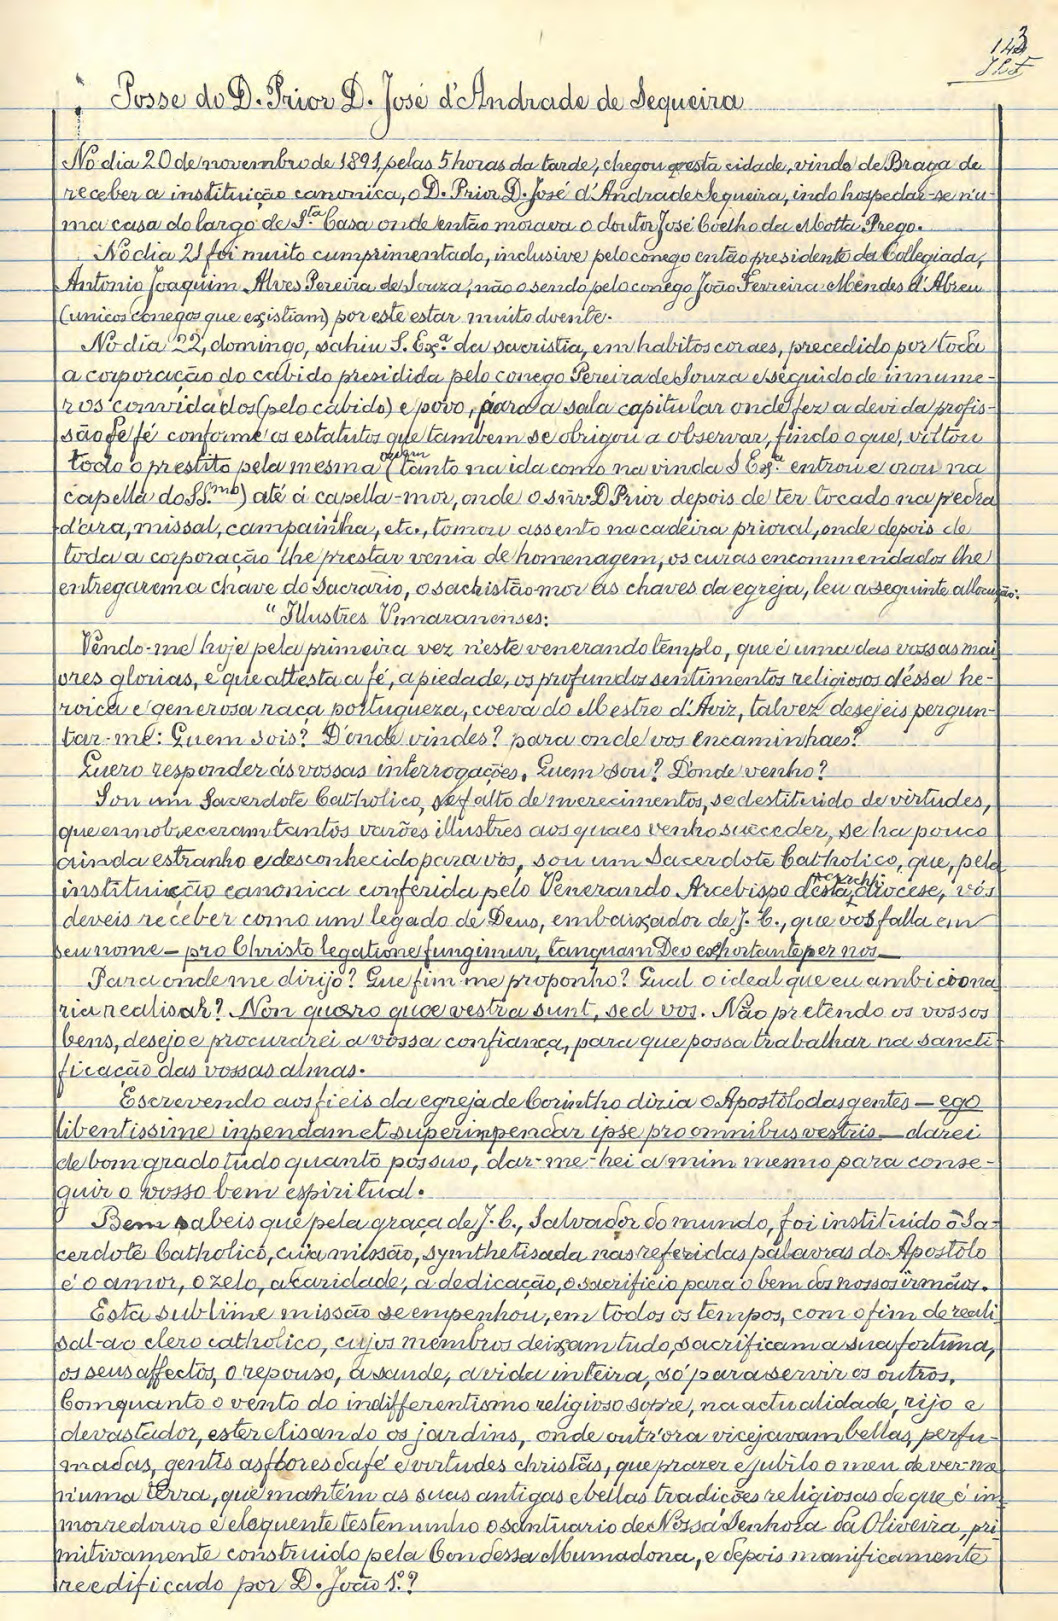 143
Posse do D. Prior D. José d'Andrade de Sequeira
No dia 20 de novembro de 1891, pelas 5 horas da tarde, chegou a esta cidade, vindo de Braga de
receber a instituição canonica, o D. Prior D. José d'Andrade Sequeira, indo hospedar-se n'u
ma casa do largo de S.ta Casa onde então morava o doutor José Coelho da Motta Prego.
No dia 21 foi muito cumprimentado, inclusive pelo conego então presidente da Collegiada,
Antonio Joaquim Alves Pereira de Souza, não o sendo pelo conego João Ferreira Mendes d'Abreu
(unicos conegos que existiam) por este estar muito doente.
No dia 22, domingo, sahiu S. Ex.a da sacristia, em habitos coraes, precedido por toda
a corporação do cabido presidida pelo conego Pereira de Souza e seguido de innume-
ros convidados (pelo cabido) e povo, para a sala capitular onde fez a devida profis-
são de fé conforme os estatutos que tambem se obrigou a observar, findo o que, voltou
todo o prestito pela mesma ordem (tanto na ida como na vinda S Ex.a entrou e orou na
capella do SS.mo) até á capella-mor, onde o snr. D Prior depois de ter tocado na pedra
d'ara, missal, campainha, etc., tomou assento na cadeira prioral, onde depois de
toda a corporação lhe prestar venia de homenagem, os curas encommendados lhe
entregarem a chave do Sacrario, o sachristão-mor as chaves da egreja, leu a seguinte allocução:
"Illustres Vimaranenses:
Vendo-me hoje pela primeira vez n'este venerando templo, que é uma das vossas mai
ores glorias, e que attesta a fé, a piedade, os profundos sentimentos religiosos d'essa he-
roica e generosa raça portugueza, coeva do Mestre d'Aviz, talvez desejeis pergun-
tar-me: Quem sois? D'onde vindes? para onde vos encaminhaes?
Quero responder ás vossas interrogações. Quem sou? D'onde venho?
Sou um Sacerdote Catholico, se falto de merecimentos, se destituido de virtudes,
que ennobreceram tantos varões illustres aos quaes venho succeder, se ha pouco
ainda estranho e desconhecido para vós, sou um Sacerdote Catholico, que, pela
instituição canonica conferida pelo Venerando Arcebispo d'esta archidiocese, vós
deveis receber como um legado de Deus, embaixador de J. C., que vos falla em
seu nome – pro Christo legatione fungimur, tanquam Deo exhortante per nos –
Para onde me dirijo? Que fim me proponho? Qual o ideal que eu ambiciona
ria realisar? Non quæro quæ vestra sunt, sed vos. Não pretendo os vossos
bens, desejo e procurarei a vossa confiança, para que possa trabalhar na sancti-
ficação das vossas almas.
Escrevendo aos fieis da egreja de Corintho dizia o Apostolo das gentes – ego
libentissime inpendam et superinpendar ipse pro omnibus vestris – darei
de bom grado tudo quanto possuo, dar-me-hei a mim mesmo para conse-
guir o vosso bem espiritual.
Bem sabeis que pela graça de J. C., Salvador do mundo, foi instituido o Sa-
cerdote Catholico, cuja missão, synthetisada nas referidas palavras do Apostolo
é o amor, o zelo, a caridade, a dedicação, o sacrificio para o bem dos nossos irmãos.
Esta sublime missão se empenhou, em todos os tempos, com o fim de reali
sal-a o clero catholico, cujos membros deixam tudo, sacrificam a sua fortuna,
os seus affectos, o repouso, a saude, a vida inteira, só para servir os outros.
Comquanto o vento do indifferentismo religioso sopre, na actualidade, rijo e
devastador, esterelisando os jardins, onde outr'ora vicejavam bellas, perfu-
madas, gentis as flores da fé e virtudes christãs, que prazer e jubilo o meu de ver-me
n'uma terra, que mantém as suas antigas e bellas tradições religiosas de que é im
morredouro e eloquente testemunho o santuario de Nossa Senhora da Oliveira, pri
mitivamente construido pela Condessa Mumadona, e depois manificamente
reedificado por D. João 1.º?